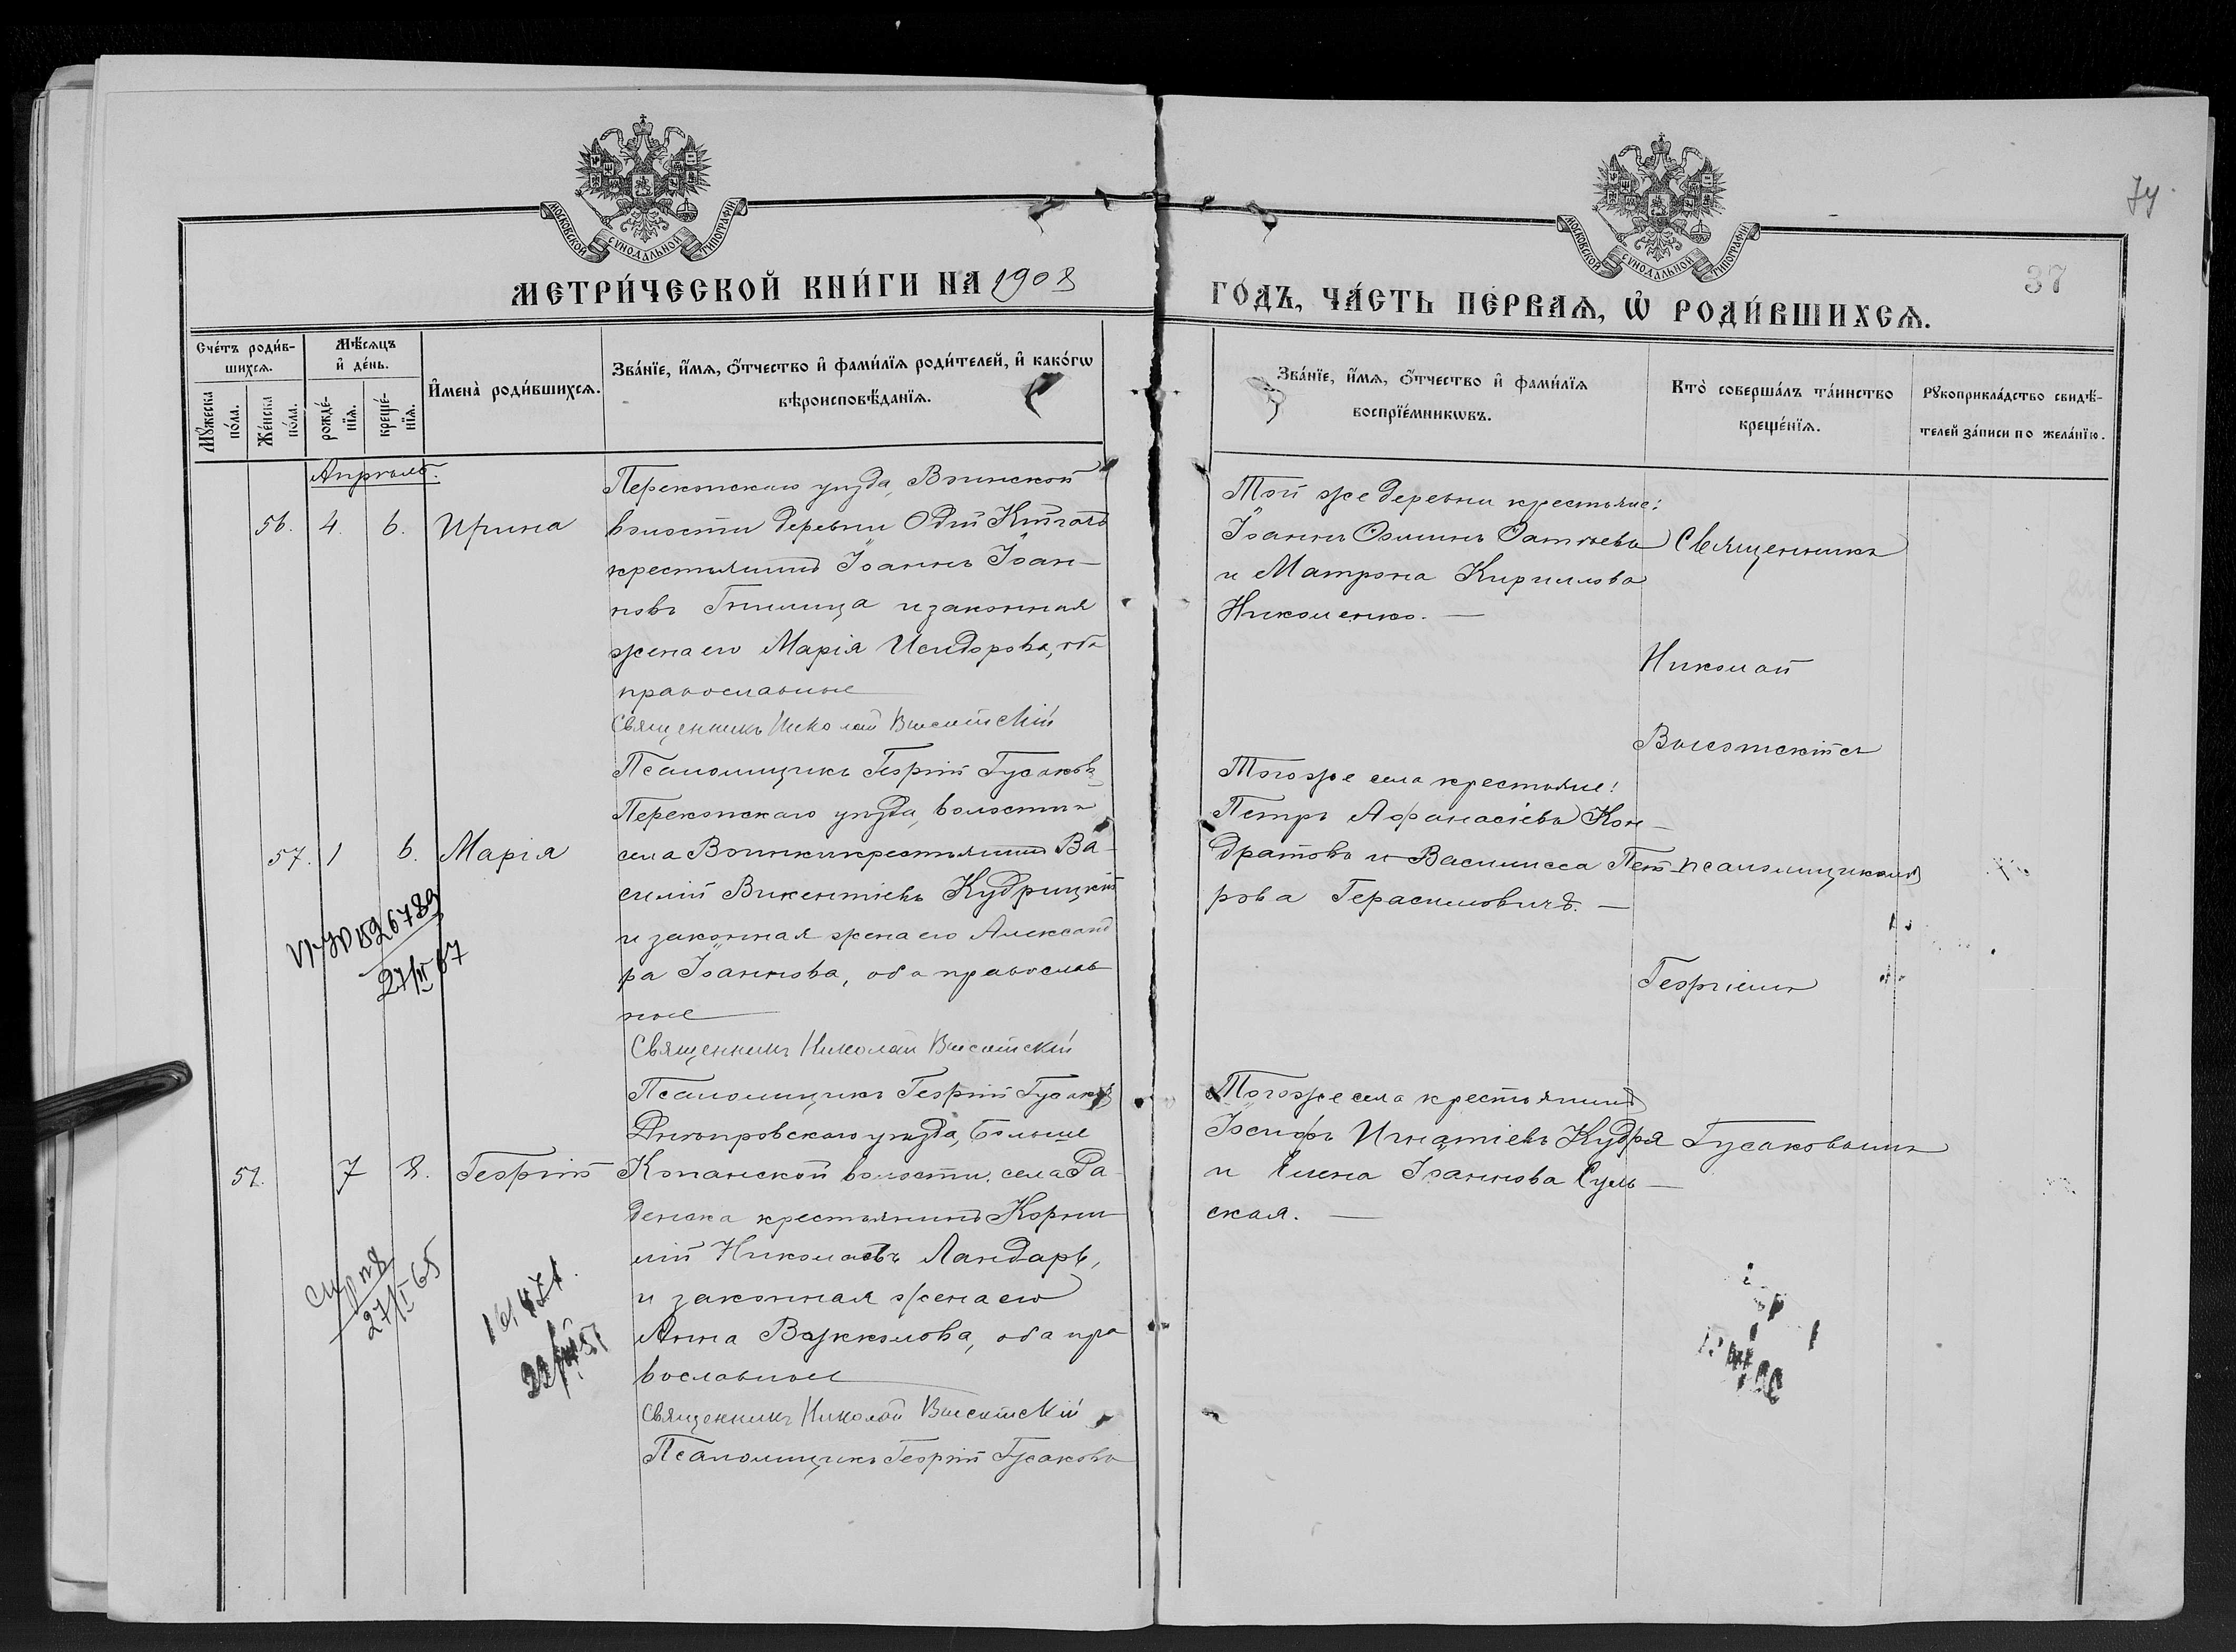 74.
37
МОСКОВСКОЙ СѴНОДАЛЬНОЙ ТИПОГРАФІИ
МОСКОВСКОЙ СѴНОДАЛЬНОЙ ТИПОГРАФІИ
МЕТРИ́ЧЕСКОЙ КНИ́ГИ НА 1908
ГО́ДЪ, ЧА́СТЬ ПЕ́РВАѦ, Ѡ РОДИ́ВШИХСѦ.
Сче́тъ роди́в-
шихсѧ.
Мꙋжеска по́ла.
Же́нска по́ла.
Мѣ́сѧцъ
и҆ де́нь.
рожде́-
нїѧ.
креще́-
нїѧ.
И҆мена̀ роди́вшихсѧ.
Зва́нїе, и҆́мѧ, ѻ҆́тчество и҆ фами́лїѧ роди́телей, и҆ како́гѡ
вѣроисповѣ́данїѧ.
Зва́нїе, и҆́мѧ, ѻ҆́тчество и҆ фами́лїѧ
воспрїе́мникѡвъ.
Кто̀ соверша́лъ та́инство
креще́нїѧ.
Рꙋкоприкла́дство свидѣ́-
телей за́писи по жела́нїю.
Апрѣль.
56. 4. 6. Ирина
Перекопскаго уѣзда, Воинской
волости деревни
крестьянинъ Іоаннъ Іоан-
новъ Гнилица и законная
жена его Марія Исидорова, оба
православные
Священникъ Николай Высотскій
Псаломщикъ Георгій Гусаковъ
Той же деревни крестьяне:
Іоаннъ
и Матрона Кириллова
Николенко. —
Священникъ
Николай
Высотскій съ
57. 1 6. Марія
Перекопскаго уѣзда, волости и
села Воинки крестьянинъ Ва-
силій Викентіевъ Кудрицкій
и законная жена его Александ
ра Іоаннова, оба православ
ные
Священникъ Николай Высотскій
Псаломщикъ Георгій Гусаковъ
Того же села крестьяне:
Петръ Афанасіевъ Кон-
дратовъ и Василисса Пет-
рова Герасимовичъ. —
псаломщикомъ
Георгіемъ
526789
27/II 67
51. 7 8. Георгій
Днѣпровскаго уѣзда, Больше
Копанской волости, села Ра-
денска крестьянинъ Корни-
лій Николаевъ Ландарь,
и законная жена его
Анна Вукколова, оба пра
вославные
Священникъ Николай Высотскій
Псаломщикъ Георгій Гусаковъ
Того же села крестьянинъ
Іосифъ Игнатіевъ Кудря
и Елена Іоаннова Суль-
ская. —
Гусаковымъ
27/II 65